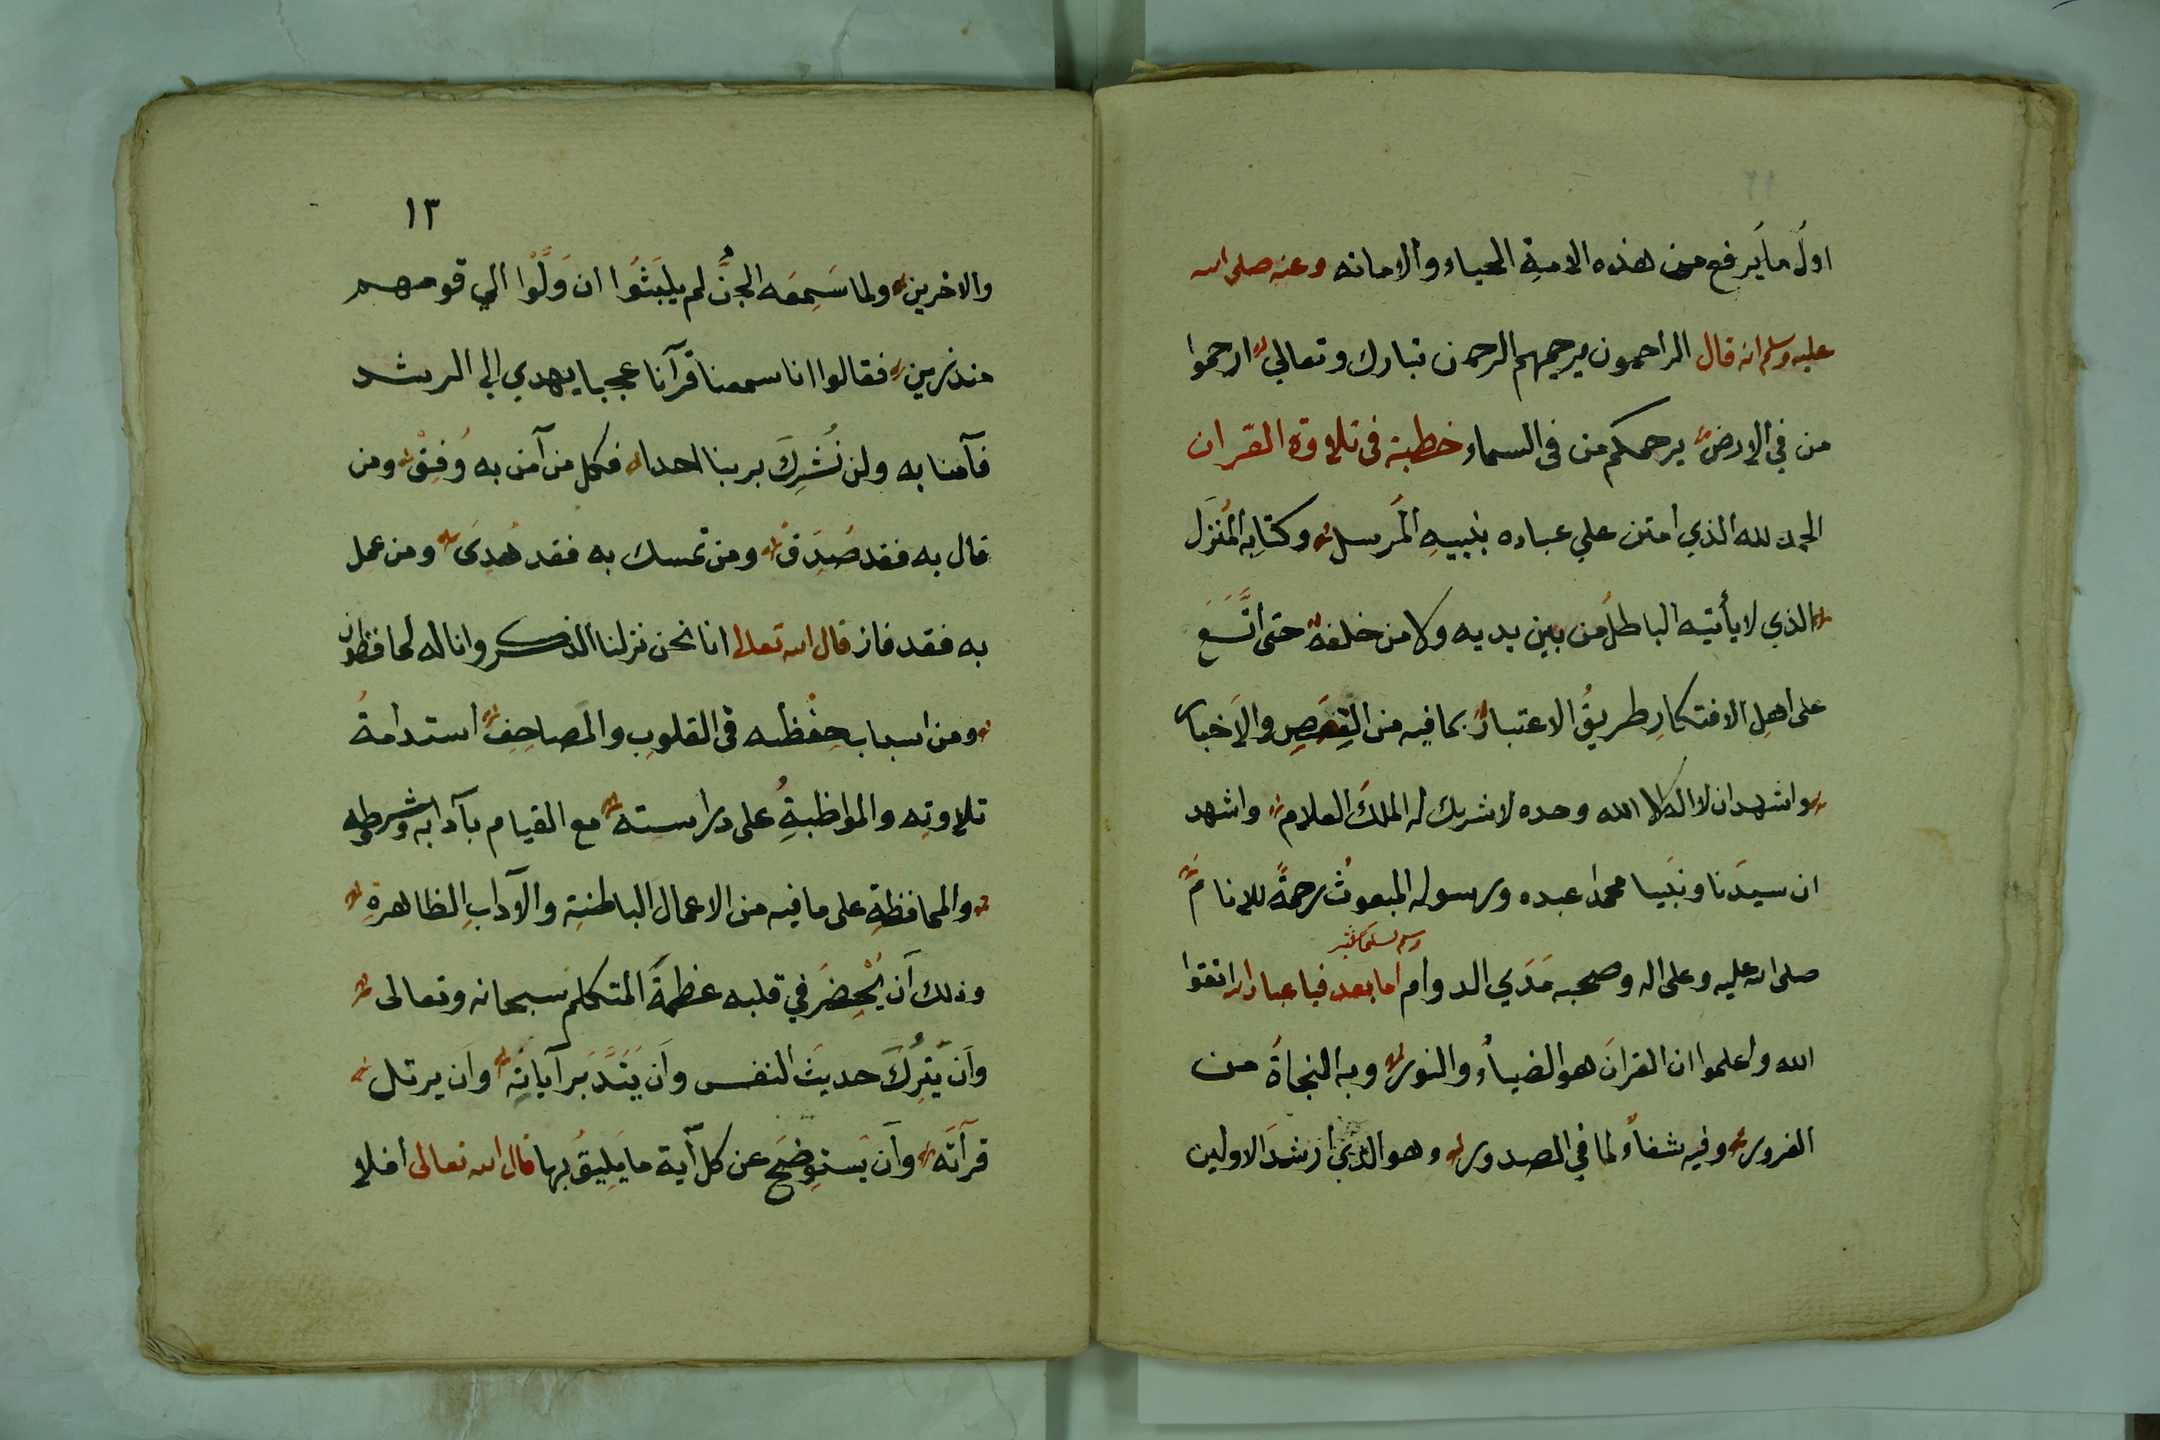 ١٢
اولُ ما يُرفع من هذه الامةِ الحياء والامانه وعنه صلى الله
عليه وسلم انه قال الراحمون يرحمهم الرحمن تبارك وتعالي ارحموا
من في الارض يرحمكم من فى السماء خطبة فى تلاوة القران
الحمد لله الذي امتن علي عباده بنبيهِ المُرسل وكتابِه المُنَزَل
الذي لا يأتيه الباطلُ من بين يديه ولا من خلفه حتى اتَّسَعَ
على اهلِ الافتكارِ طريقُ الاعتبار بما فيه من القِصَصِ والاَخبار
واشهد ان لا اله الا الله وحده لا شريك له الملكُ العلام واشهد
ان سيدَنا ونبَيا محمدا عبده ورسوله المبعوثُ رحمةً للانام
وسلم تسليما كثير
صلى الله عليه وعلى اله وصحبه مَدَي الدوام اما بعد فيا عباد الله اتقوا
الله واعلموا ان القرانَ هو الضياءُ والنور وبه النجاةُ من
الغرور وفيه شفاءٌ لما في الصدور وهو الذي أرشدَ الاولين
١٣
والاخرين ولما سَمِعَه الجنُّ لم يلبَثُوا ان وَلَّوْا الي قومهم
منذرين فقالوا انا سمعنا قرآنا عجبا يهدي الي الرشد
فآمنا به ولن نُشرِكَ بربنا احدا فكل من آمن به وُفِقْ ومن
قال به فقد صُدِق ومن تمسك به فقد هُدِىَ ومن عمل
به فقد فاز قال الله تعالى انا نحن نزلنا الذكر وانا له لحافظون
ومن اسبابِ حِفْظِه فى القلوبِ والمَصاحِفِ استدامةُ
تلاوتِه والمواظبةُ على دراسته مع القيام بآدابه وشروطه
والمحافظةِ على ما فيه من الاعمال الباطنةِ والآدابِ الظاهرةِ
وذلك أن يُحْضِرَ في قلبه عظمةَ المتكلم سبحانه وتعالى
وأن يَترُكَ حديثَ النفس وأن يَتَدَّبَر آياتِه وأن يرتل
قرآتَه وأن يَستوضِحَ عن كل آية ما يَلِيقُ بها قال الله تعالى افلا